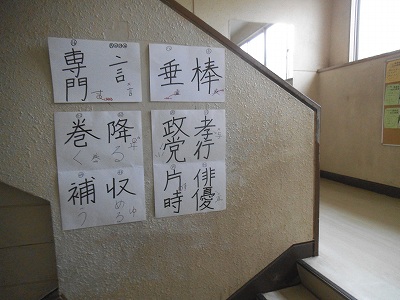 専門
一言
垂
棒
巻く
降る
政党
孝行
補う
収める
片時
俳優